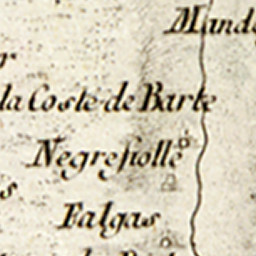 Mand
r
la Coste de Barte
Negresiolle
s
Falgas